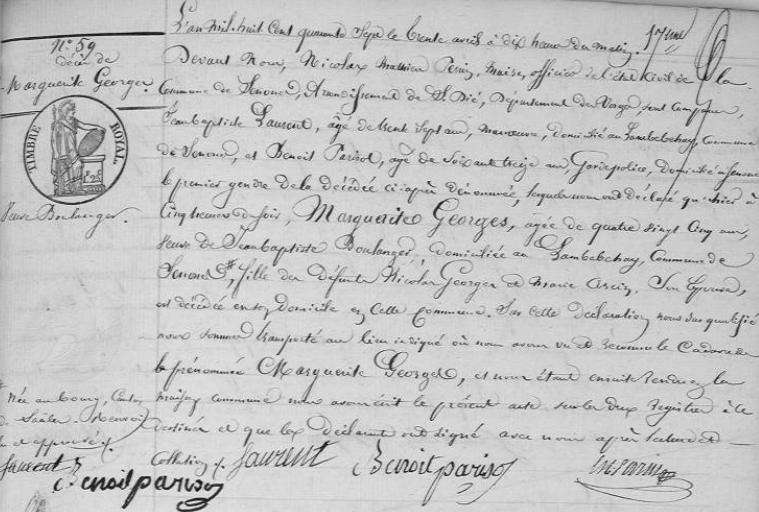 N.° 59
décès de
Marguerite Georges.
TIMBRE ROYAL.
Veuve Boulanger.
L'an mil huit cent quarante sept le trente avril à dix heures du matin, 17eme
Devant Nous, Nicolas Mathieu Perrin, Maire, officier de l'état Civil de la
Commune de Senones, Arrondissement de St Dié, Département des Vosges, sont comparus,
Jeanbaptiste Laurent, âgé de trente sept ans, manœuvre, domicilié au commune
de Senones, et Benoit Parisot, âgé de soixante treize ans, Gardepolice, domicilié à Senones
le premier gendre de la décédée ci-après dénommée, lesquels nous ont déclaré qu'hier à
Cinq heures du soir, Marguerite Georges, âgée de quatre vingt cinq ans,
Veuve de Jeanbaptiste Boulanger, domiciliée au Commune de
Senones #, fille des défunts Nicolas Georges et Marie son Epouse,
est décédée en son domicile en cette Commune. Sur cette déclaration nous sus qualifié
nous sommes transporté au lieu indiqué où nous avons vu et reconnu le Cadavre de
la prénommée Marguerite Georges, et nous étant ensuite rendu en la
maison commune nous avons écrit le présent acte sur les deux registres à ce
destinés et que les déclarants ont signé avec nous après lecture et
Collation ./.
# Née au
de renvoi
et approuvé ./.
Laurent
Benoit parisot
Laurent Benoit parisot